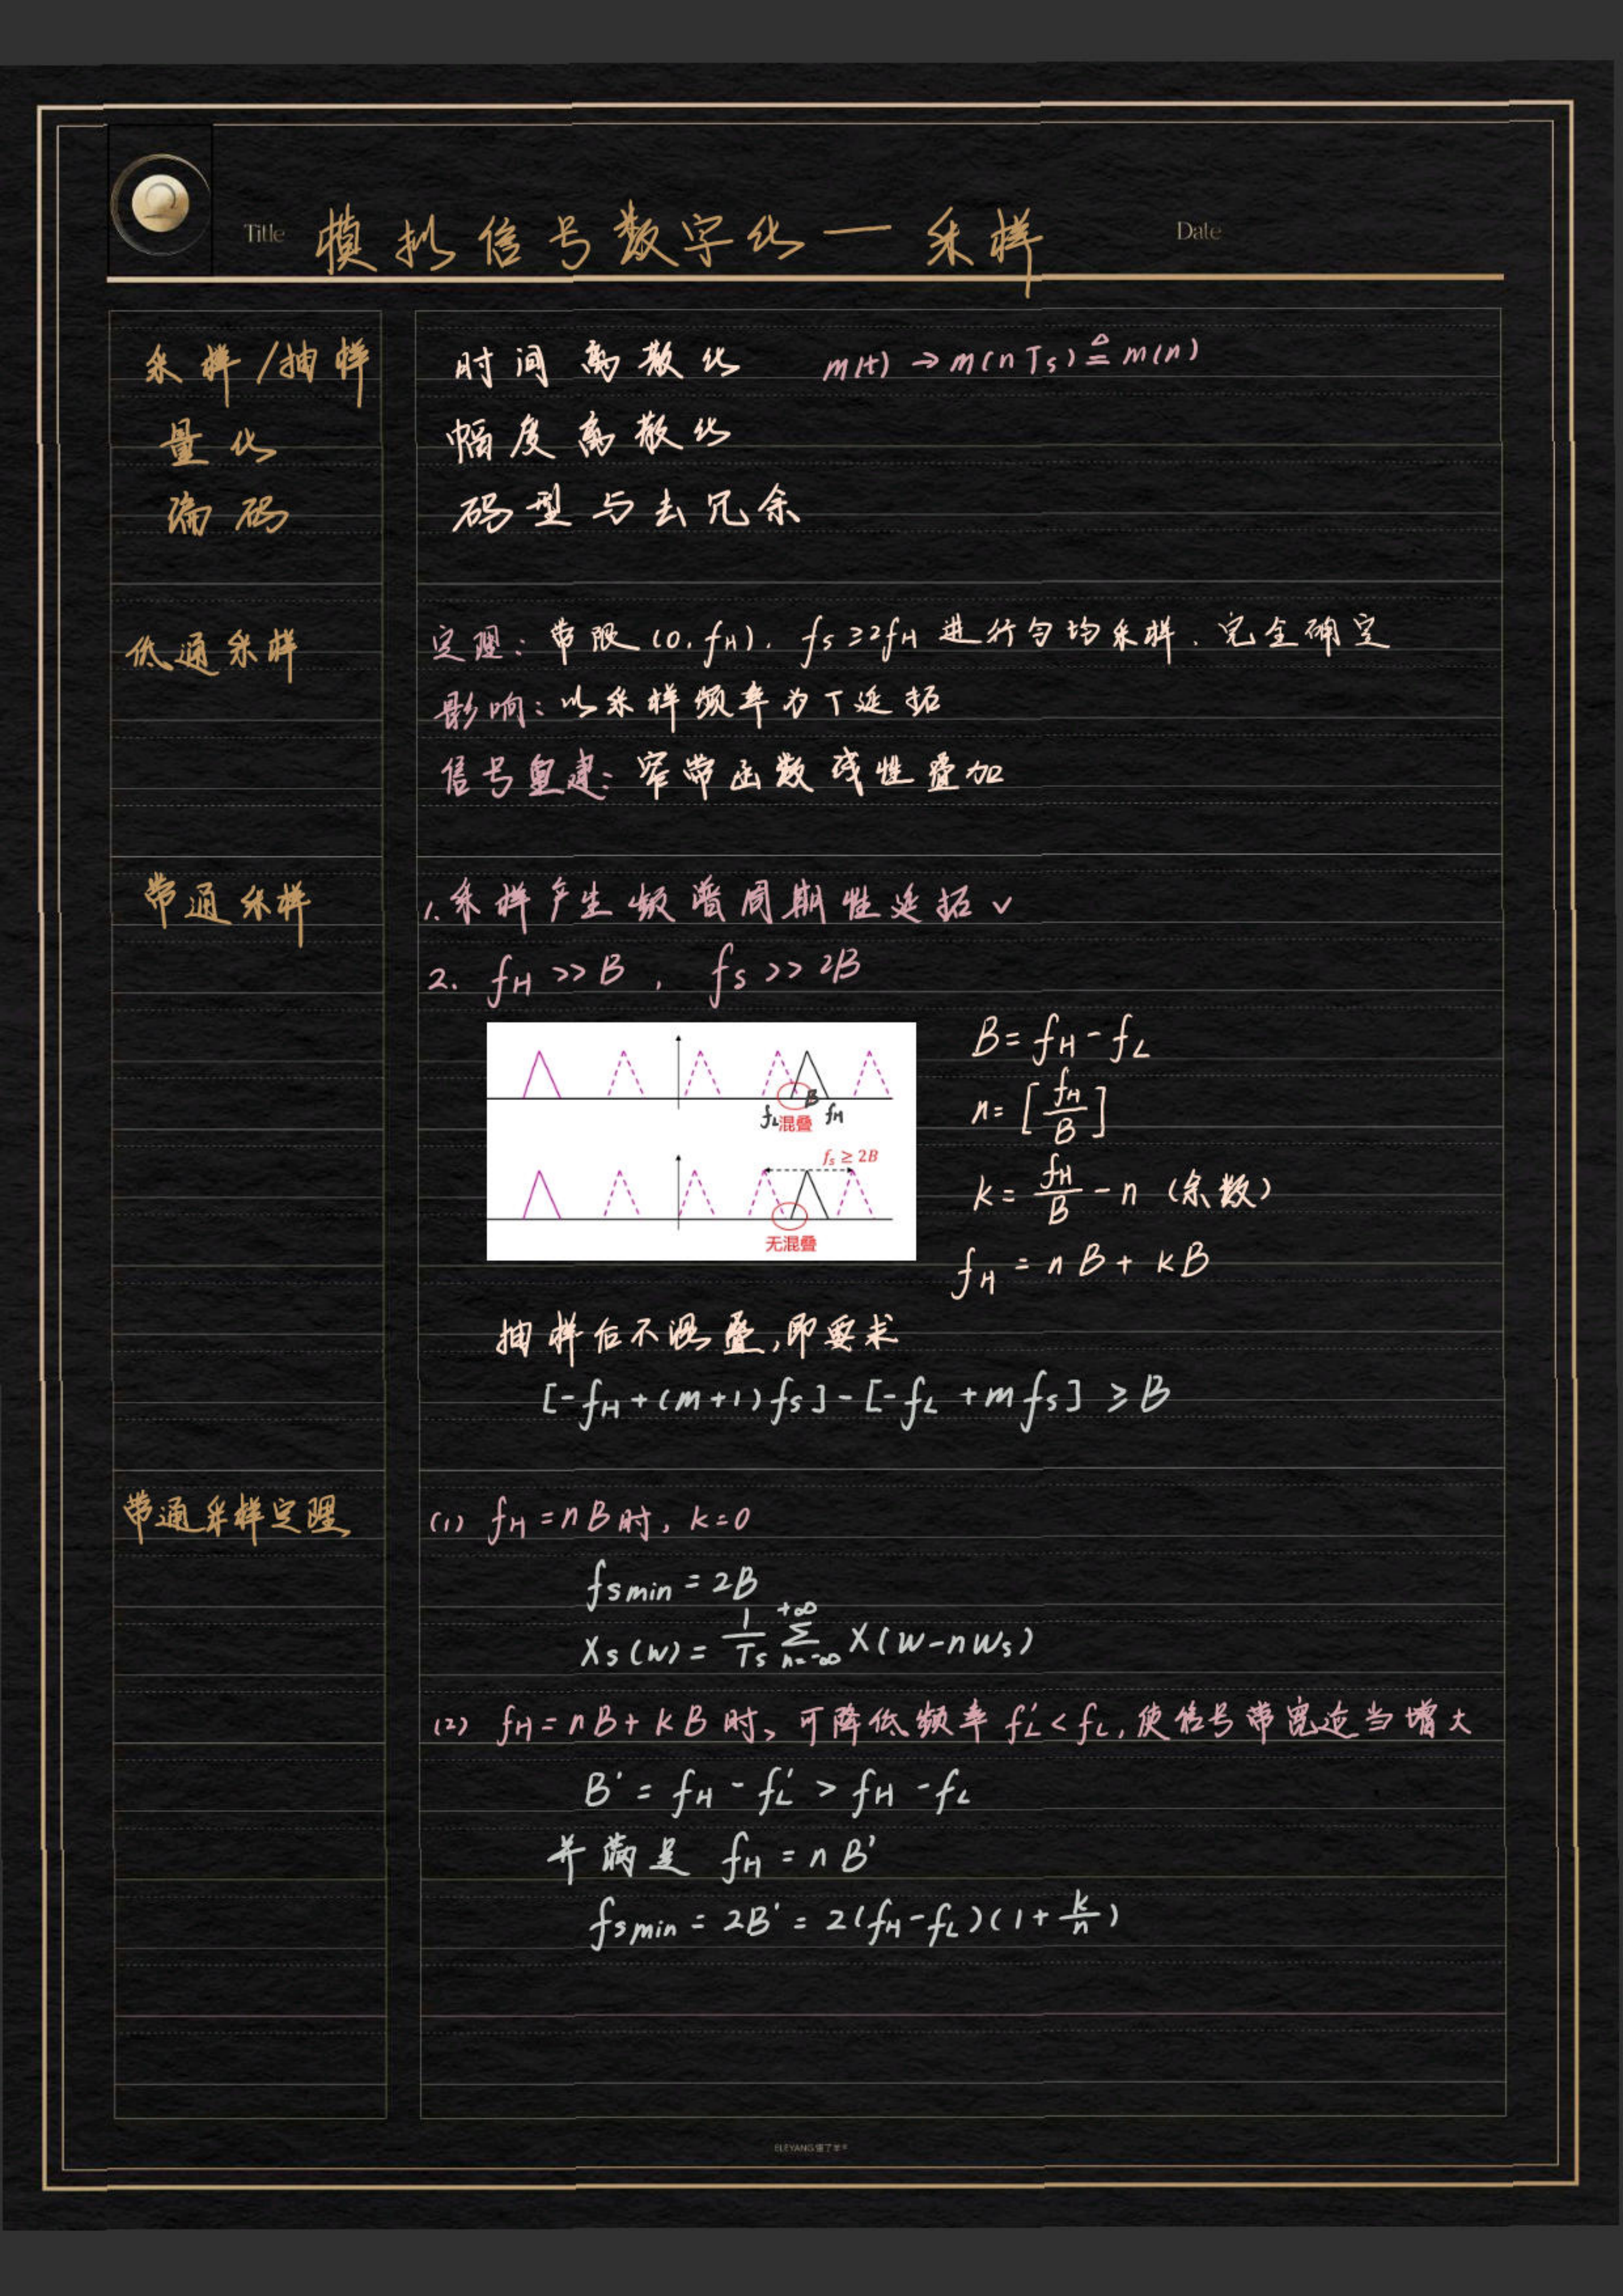 Title 模拟信号数字化—采样 Date
采样/抽样 时间离散化 m(t)→m(nTs)≜m(n)
量化 幅度离散化
编码 码型与去冗余
低通采样 定理：带限(0,fH)，fs≥2fH进行匀均采样，完全确定
影响：以采样频率为T延拓
信号重建：窄带函数线性叠加
带通采样 1.采样产生频谱周期性延拓✓
2. fH>>B，fs>>2B
B=fH-fL
n=[fH/B]
k=fH/B-n (余数)
fH=nB+kB
B
fL混叠 fH
fs≥2B
无混叠
抽样后不混叠，即要求
[-fH+(m+1)fs]-[-fL+mfs]≥B
带通采样定理 (1) fH=nB时，k=0
fsmin=2B
Xs(w)=1/Ts Σ(n=-∞,+∞) X(w-nws)
(2) fH=nB+kB时，可降低频率fL'<fL，使信号带宽适当增大
B'=fH-fL'>fH-fL
并满足 fH=nB'
fsmin=2B'=2(fH-fL)(1+k/n)